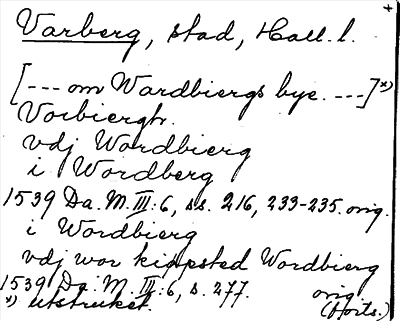 Varberg, stad, Hall. l. +
[--- om Wardbiergs bye. ---] x)
Vorbiergh.
vdj Wordbierg
i Wordberg
1539 Da. M. III:6, ss. 216, 233-235. orig.
i Wordbierg
vdj wor kiøpsted Wordbierg
1539 Da. M. III:6, s. 277. orig.
x) utstruket. (Forts.)